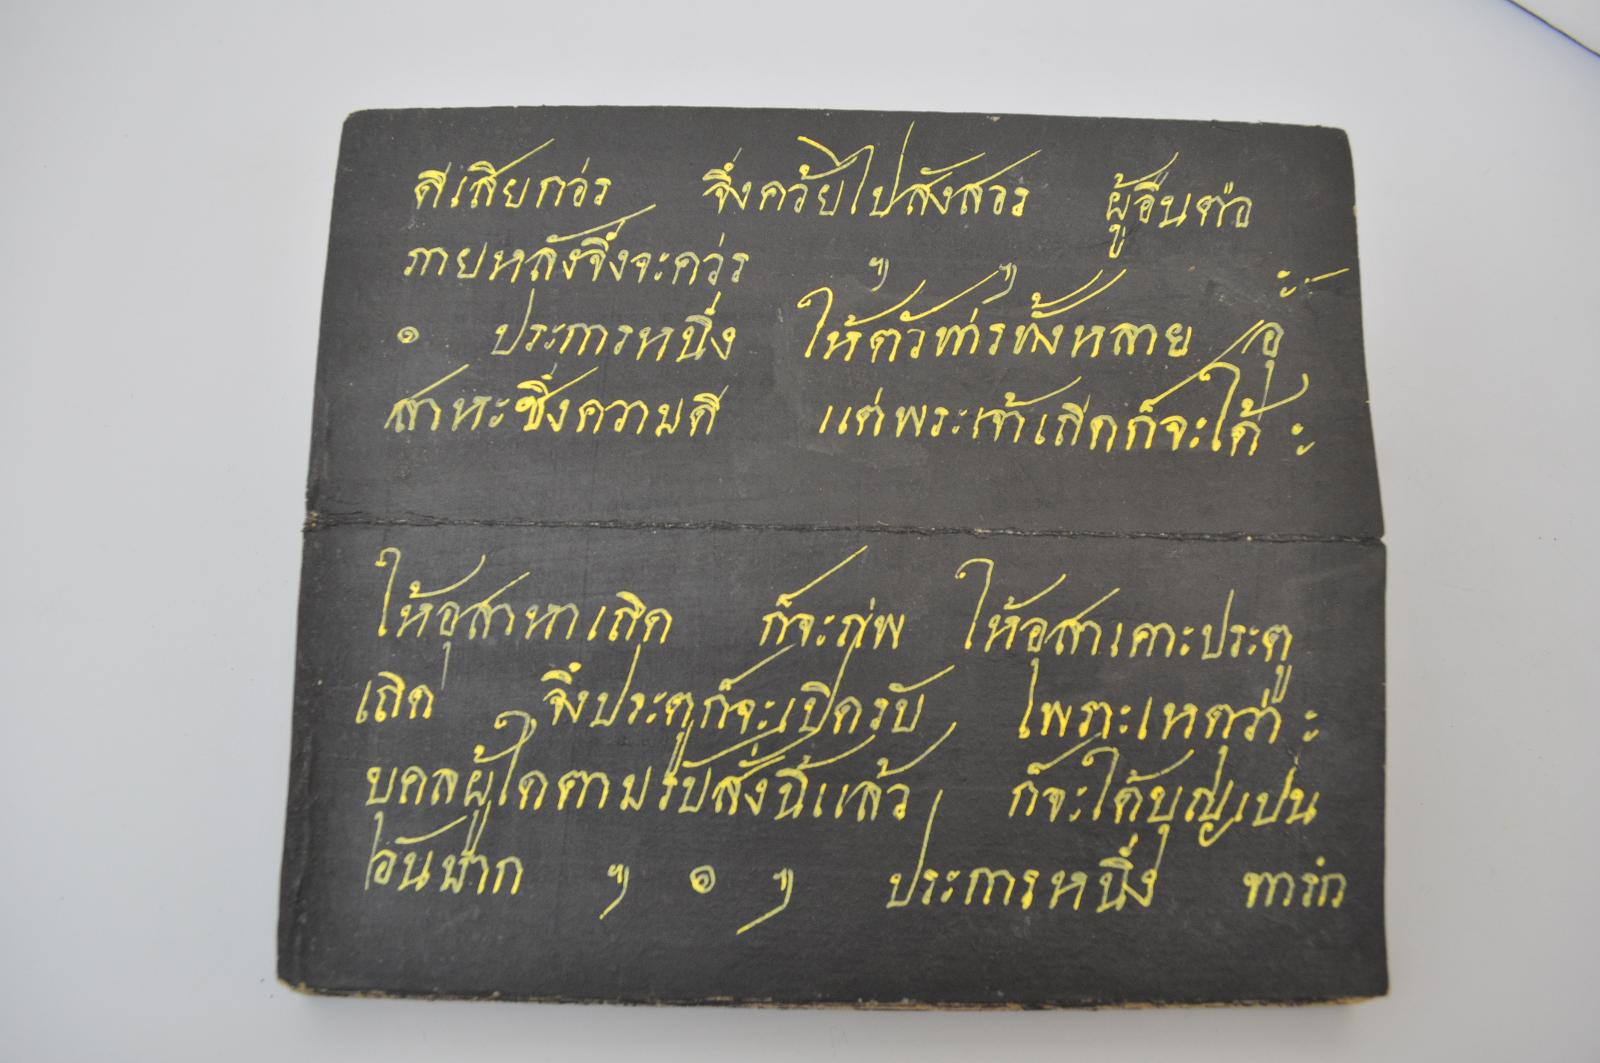 ดีเสียกอ่ร จึ่งคว้ยไปสังสวร ผู้อื่นตํอ
ภายหลังจึ่งจะคว่ร ๆ ๆ
๑ ประการหนึ่ง ให้ตัวท่ารทั้งหลาย อุ
สาหะซึ่งความดี แต่พระเจ้าเถิดก็จะได้
ให้อุสาหาเถิด ก็จะภ่พ ให้อุสาเคาะประตู
เถิด จึ่งประตูก็จะเปิดรับ ไพราะเหตุว่า
บุคลผู้ใดตามรับสั่งนี้แล้ว ก็จะได้บุญเป่น
อันมาก ๆ ๑ ๆ ประการหนึ่ง